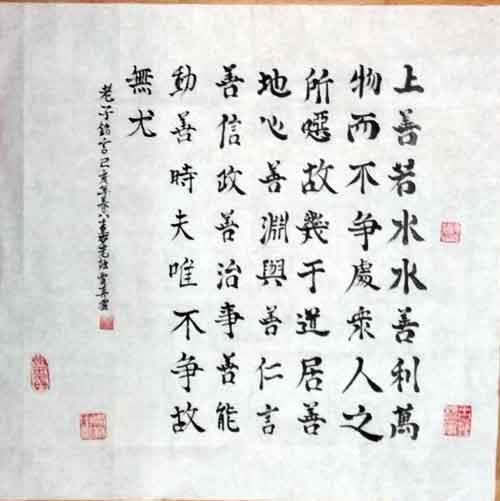 上善若水水善利萬
物而不争處衆人之
所惡故幾于道居善
地心善淵與善仁言
善信政善治事善能
動善時夫唯不争故
無尤
老子 言己亥年